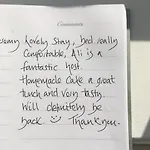 Comments
Lovely stay, bed really
Comfortable, Ali is a
fantastic host.
Homemade Cake a great
touch and very tasty.
Will definitely be
back ☺ Thankyou.